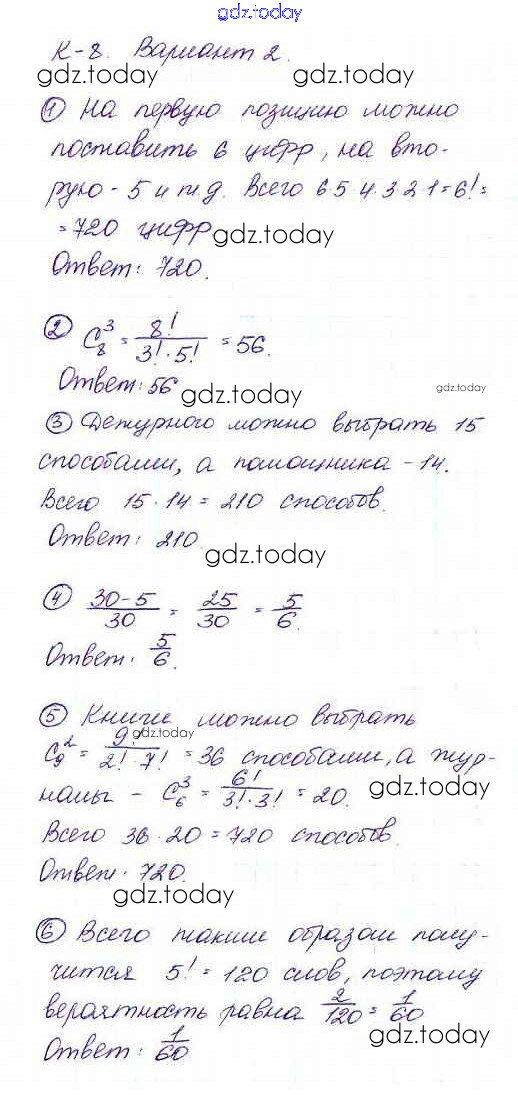 gdz.today
К-8. Вариант 2.
gdz.today gdz.today
① На первую позицию можно
поставить 6 цифр, на вто-
рую - 5 и т.д. Всего 6·5·4·3·2·1=6!=
=720 цифр
gdz.today
Ответ: 720.
② C₈³ = 8!/(3!·5!) = 56.
Ответ: 56
gdz.today gdz.today
③ Дежурного можно выбрать 15
способами, а помощника - 14.
Всего 15·14=210 способов.
Ответ: 210.
gdz.today
④ (30-5)/30 = 25/30 = 5/6.
Ответ: 5/6.
⑤ Книги можно выбрать
gdz.today
C₉² = 9!/(2!·7!) = 36 способами, а жур-
налы - C₆³ = 6!/(3!·3!) = 20.
gdz.today
Всего 36·20=720 способов.
Ответ: 720.
gdz.today
⑥ Всего таким образом полу-
чится 5!=120 слов, поэтому
вероятность равна 2/120 = 1/60
gdz.today
Ответ: 1/60